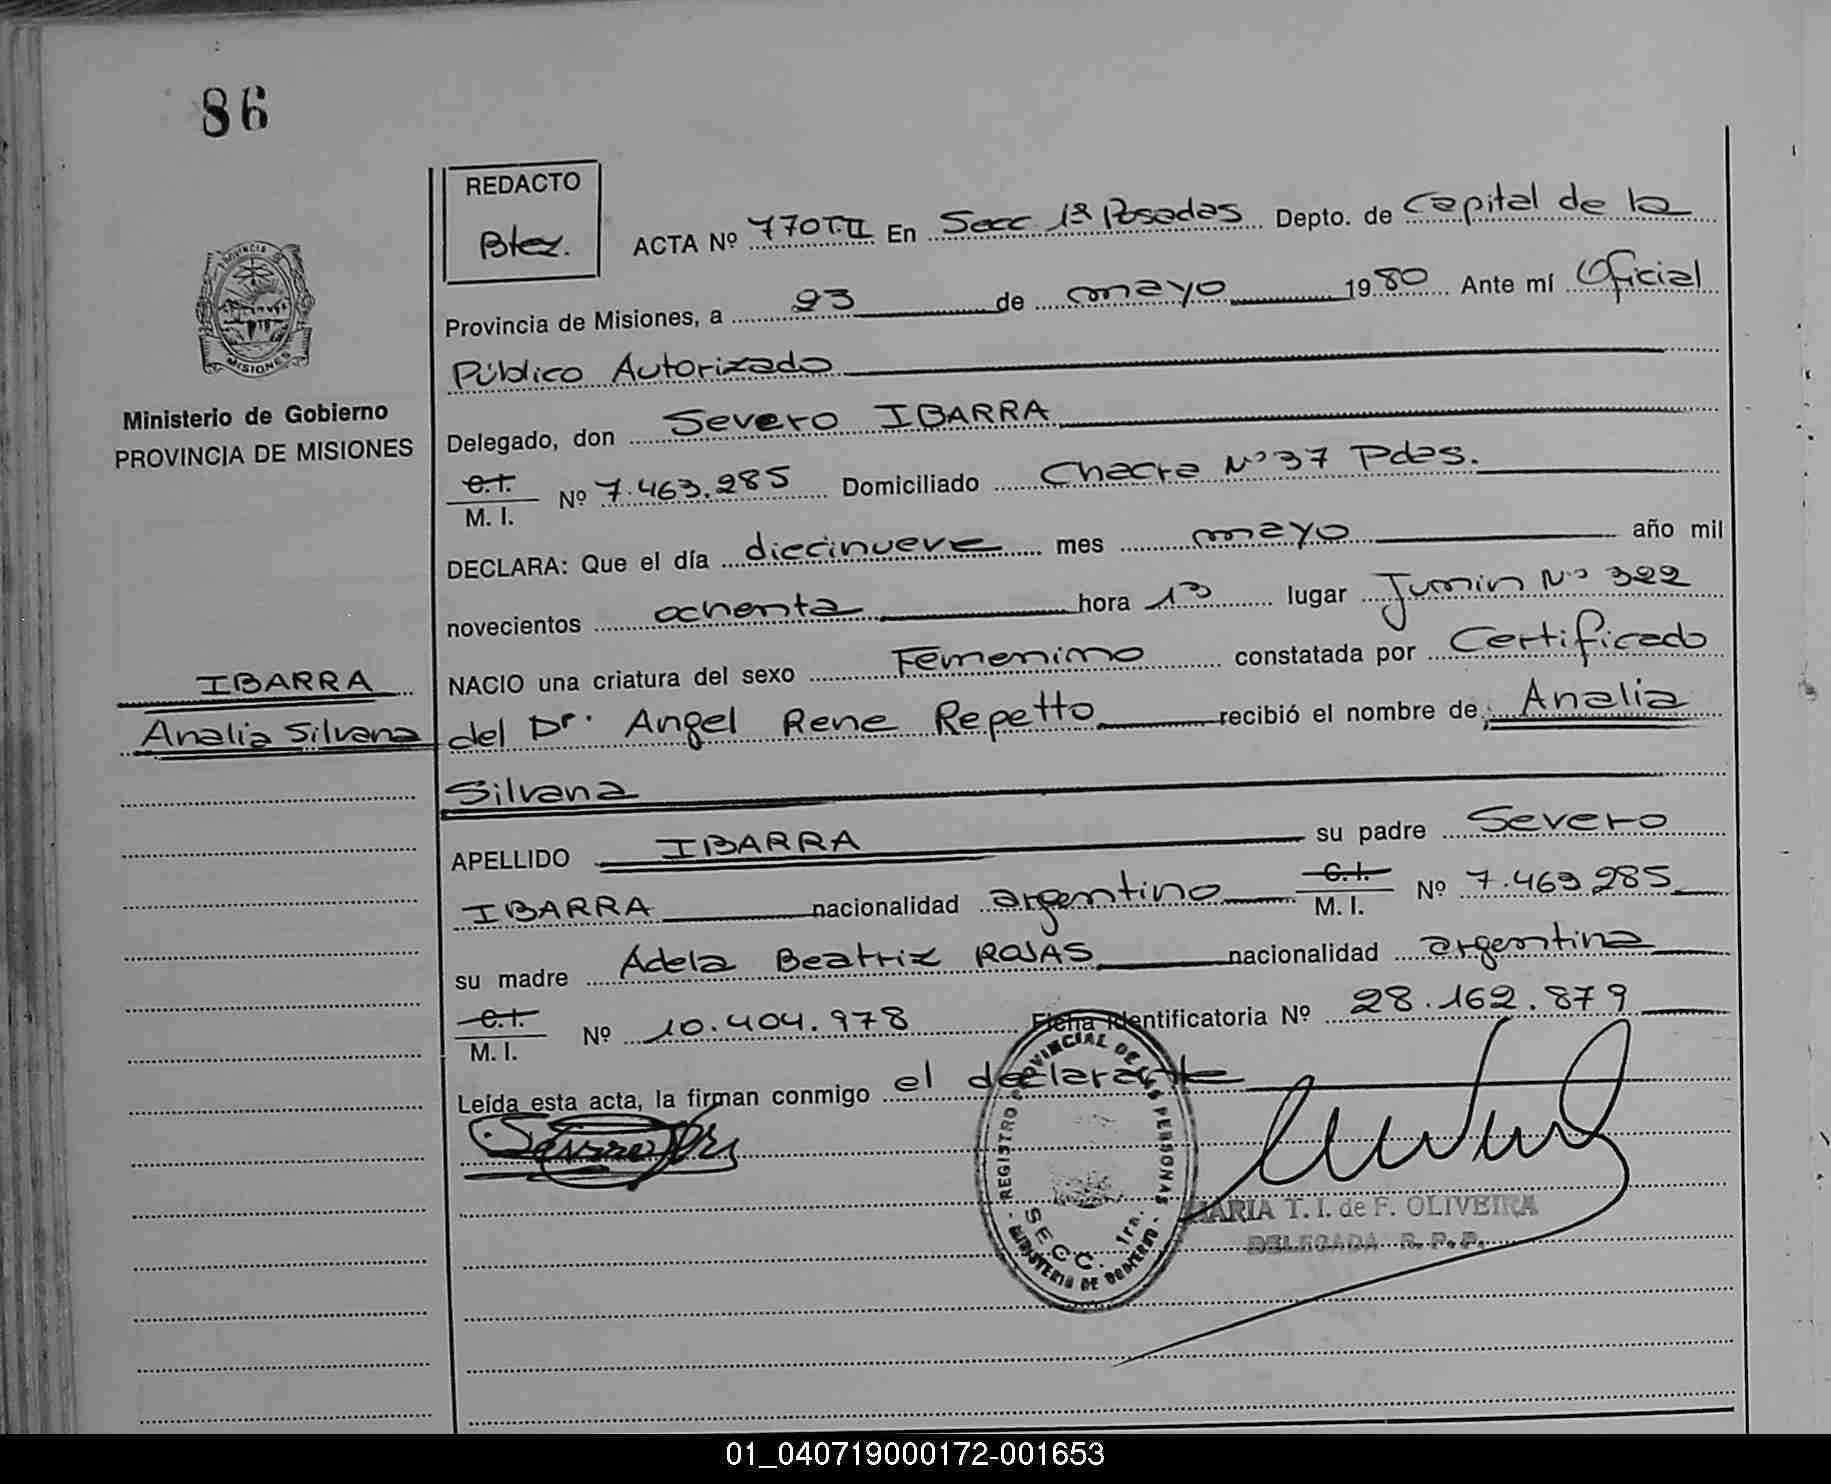 86
REDACTO
Btez.
ACTA Nº 770 T.II En Secc 1ª Posadas Depto. de Capital de la
Provincia de Misiones, a 23 de mayo 1980 Ante mí Oficial
Público Autorizado
PROVINCIA
MISIONES
Ministerio de Gobierno
PROVINCIA DE MISIONES
Delegado, don Severo IBARRA
C.I.
M. I. Nº 7.463.285 Domiciliado Chacra Nº 37 Pdas.
DECLARA: Que el día diecinueve mes mayo año mil
novecientos ochenta hora 13 lugar Junin Nº 322
NACIO una criatura del sexo Femenino constatada por Certificado
IBARRA
Analia Silvana
del Dr. Angel Rene Repetto recibió el nombre de; Analia
Silvana
APELLIDO IBARRA su padre Severo
IBARRA nacionalidad argentino C.I. M. I. Nº 7.463.285
su madre Adela Beatriz ROJAS nacionalidad argentina
C.I.
M. I. Nº 10.404.978 Ficha Identificatoria Nº 28.162.879
Leída esta acta, la firman conmigo el declarante
REGISTRO PROVINCIAL DE LAS PERSONAS
SECC. 1ra.
MINISTERIO DE GOBIERNO
MARIA T. I. de F. OLIVEIRA
DELEGADA R. P. P.
01_040719000172-001653